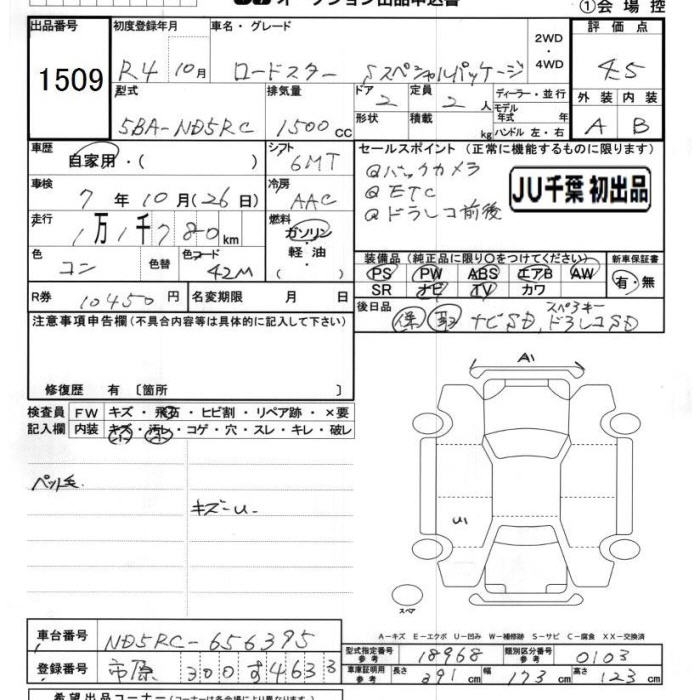 ①会場控
出品番号
1509
初度登録年月
R4 10月
車名・グレード
ロードスター Sスペシャルパッケージ
2WD
・
4WD
評価点
4.5
型式
5BA-ND5RC
排気量
1500 cc
ドア
2
定員
2 人
形状
積載
kg
ディーラー・並行
モデル
年式 年
ハンドル 左・右
外装 内装
A B
車歴
自家用・( )
シフト
6MT
車検
7年10月(26日)
冷房
AAC
走行
1万1千780km
燃料
ガソリン
・
軽油
( )
色
コン
色替
色コード
42M
セールスポイント (正常に機能するものに限ります)
@バックカメラ
@ETC
@ドラレコ前後
JU千葉 初出品
装備品 (純正品に限り○をつけてください)
PS PW ABS エアB AW
SR ナビ TV カワ
新車保証書
有・無
R券 10450円
名変期限 月 日
後日品
保 取 ナビSD、ドラレコSD
スペアキー
注意事項申告欄 (不具合内容等は具体的に記入して下さい)
修復歴 有 〔箇所 〕
検査員
記入欄
FW キズ・飛石・ヒビ割・リペア跡・×要
内装 キズ・汚レ・コゲ・穴・スレ・キレ・破レ
ペット毛
キズーU-
A1
U1
スペア
A-キズ E-エクボ U-凹み W-補修跡 S-サビ C-腐食 XX-交換済
車台番号 ND5RC-656395
登録番号 市原 300 す 4633
型式指定番号
参考
18968
類別区分番号
参考
0103
車庫証明用
参考
長さ 391cm 幅 173cm 高さ 123cm
希望出品コーナー (コーナーは各会場により異なります)